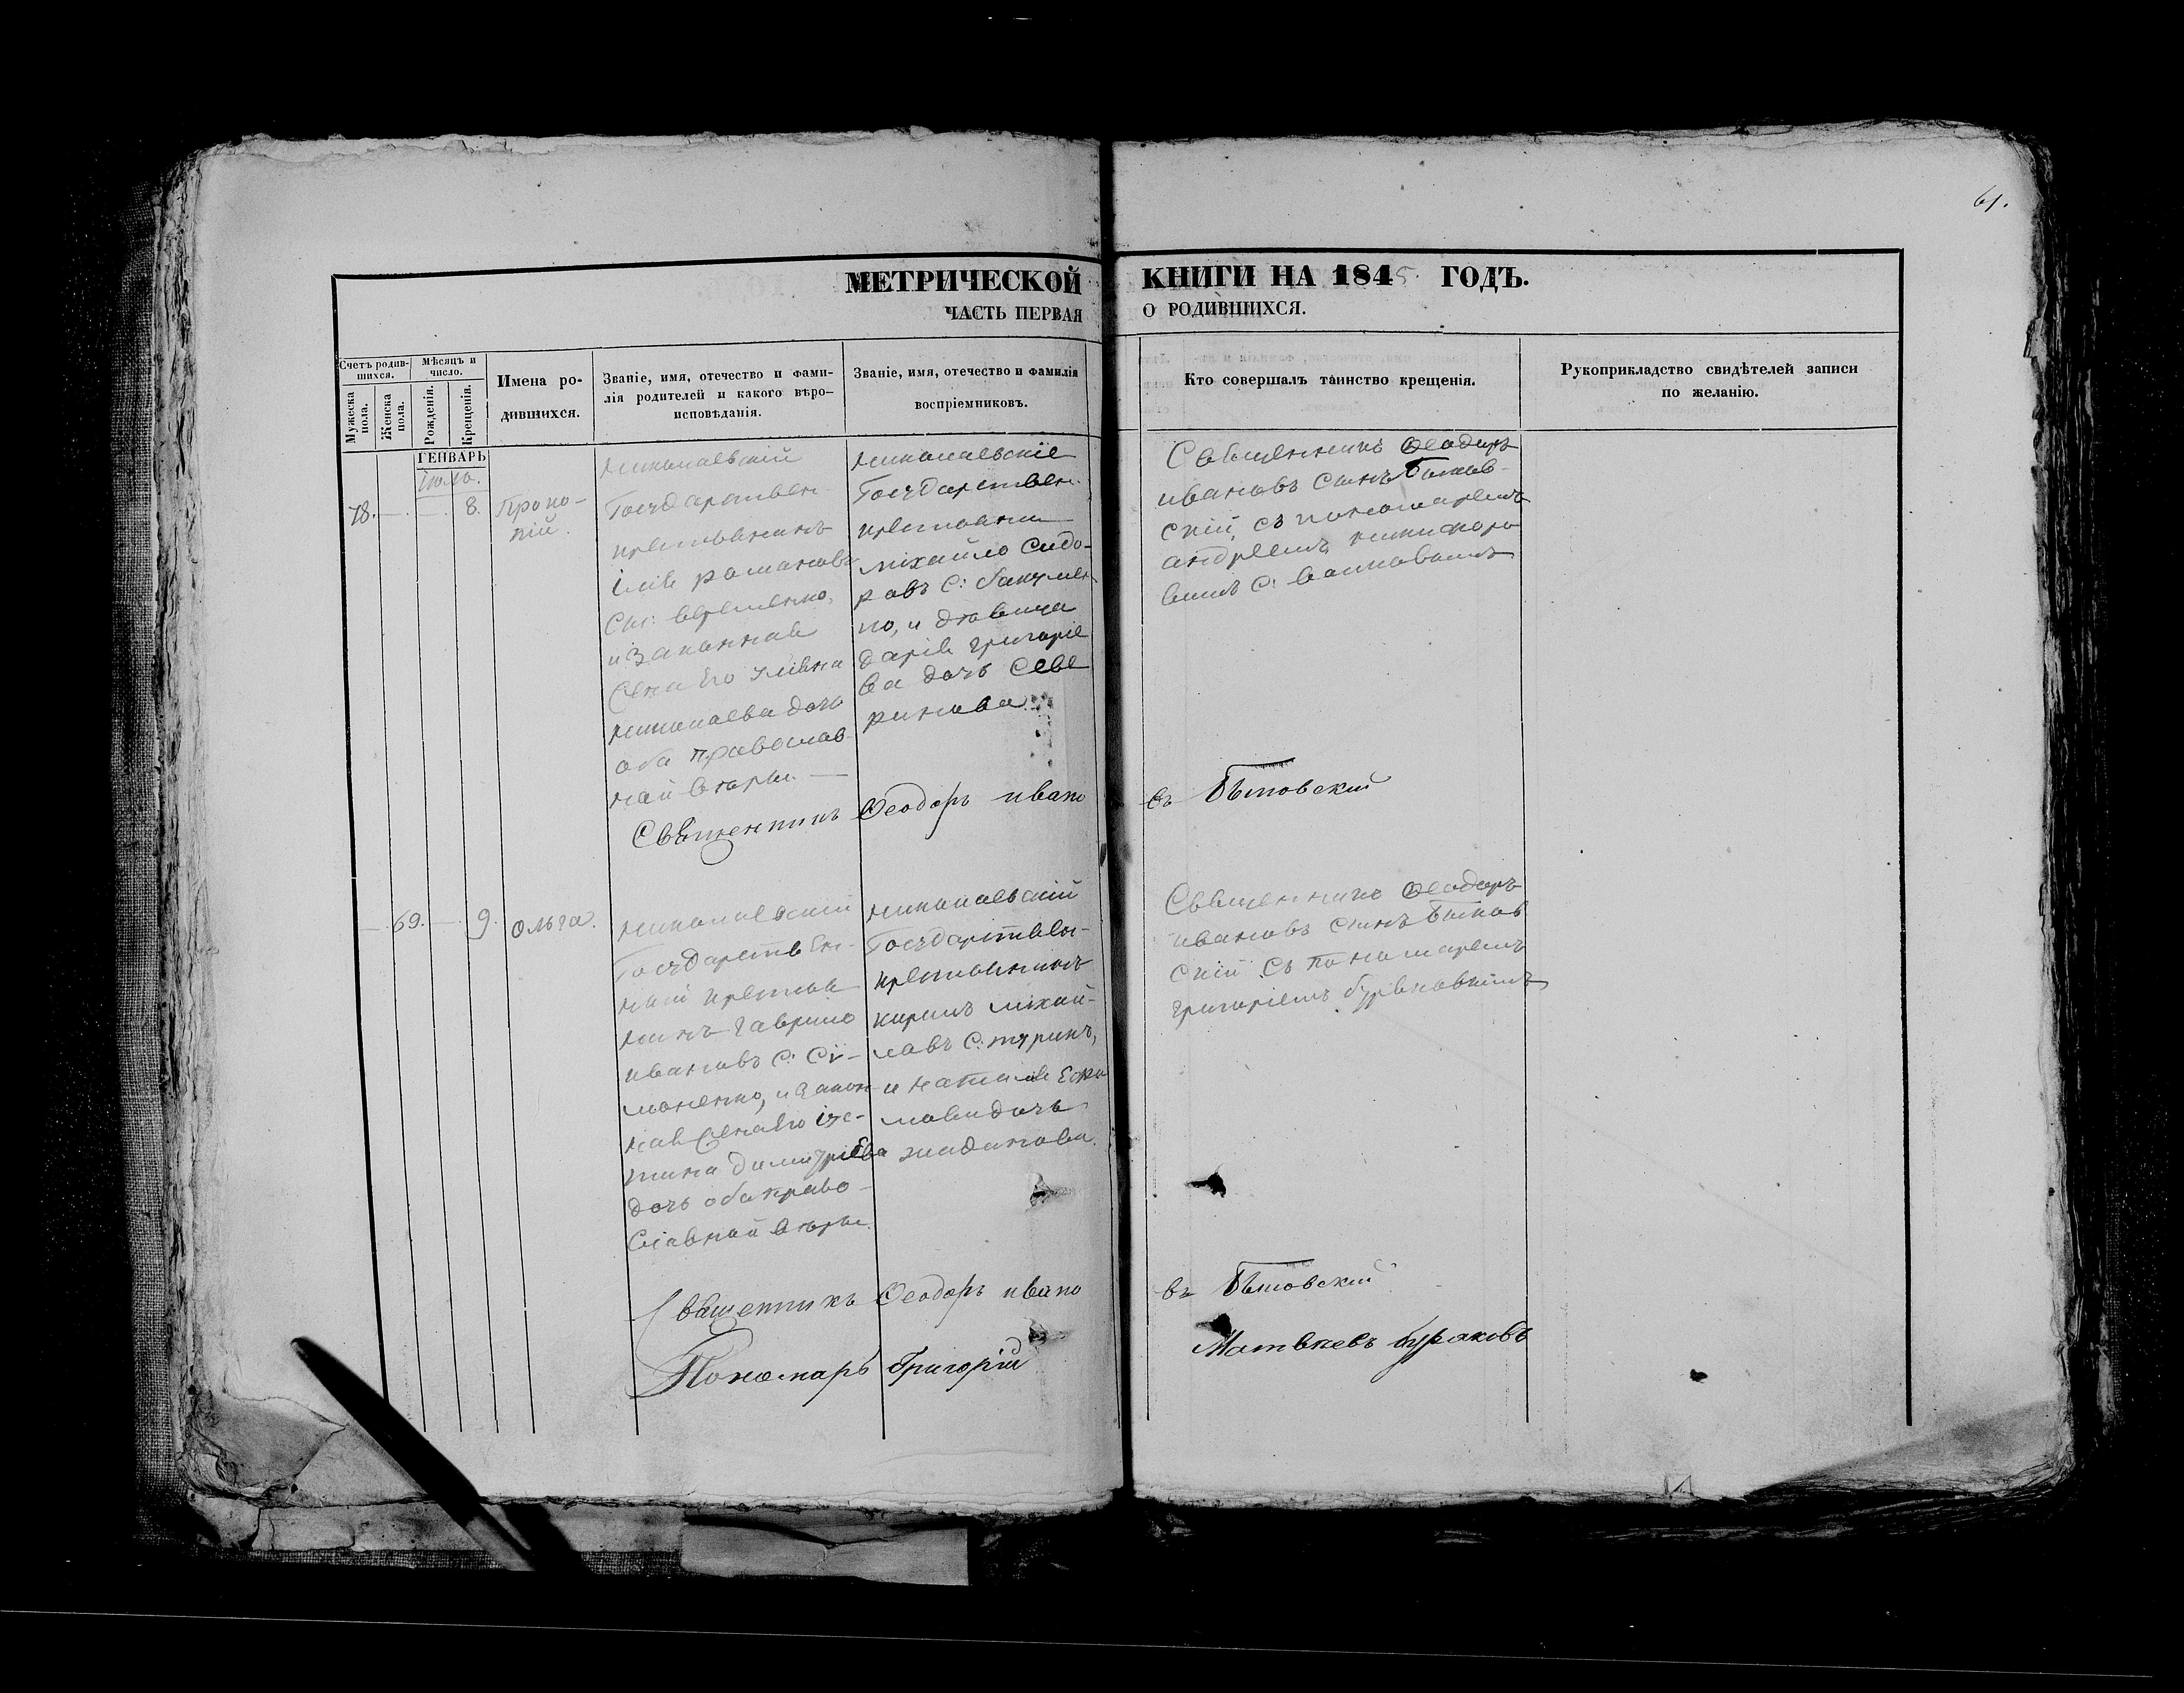 61.
МЕТРИЧЕСКОЙ КНИГИ НА 1845. ГОДЪ.
ЧАСТЬ ПЕРВАЯ О РОДИВШИХСЯ.
Счетъ родив-
шихся.
Мужеска
пола.
Женска
пола.
Мѣсяцъ и
число.
Рожденія.
Крещенія.
Имена ро-
дившихся.
Званіе, имя, отечество и фами-
лія родителей и какого вѣро-
исповѣданія.
Званіе, имя, отечество и фамилія
воспріемниковъ.
Кто совершалъ таинство крещенія.
Рукоприкладство свидѣтелей записи
по желанію.
ГЕНВАРЬ
Іюль.
78. — — 8.
Проко-
пій.
николаевскій
Государствен-
крестьянинъ
Ілія романовъ
и законная
николаева дочь
оба православ-
николаевскіе
Государствен.
крестьяни
михайло сидо-
ровъ С:
но, и дѣвица
дарія григоріе
ва дочь севе
ринова
Священникъ Ѳеодоръ
ивановъ сынъ Бытов-
скій, съ пономаремъ
андреемъ никифоро
вымъ С:
Священникъ Ѳеодоръ ивано въ Бытовский
— 69. — 9. ольга.
николаевскій
Государствен-
ный крестья
нинъ гаврило
ивановъ С: Сі-
моненко, и закон-
тина димитріева
дочь оба право-
славной вѣры.
николаевскій
Государствен-
крестьянинъ
кирилъ михай-
ловъ С: туринъ,
и наталія
дочь
жаданова.
Священникъ Ѳеодоръ
ивановъ сынъ Бытов
скій съ пономаремъ
григоріемъ
Священникъ Ѳеодоръ ивано въ Бытовский
Пономарь Григорій Матвѣевъ